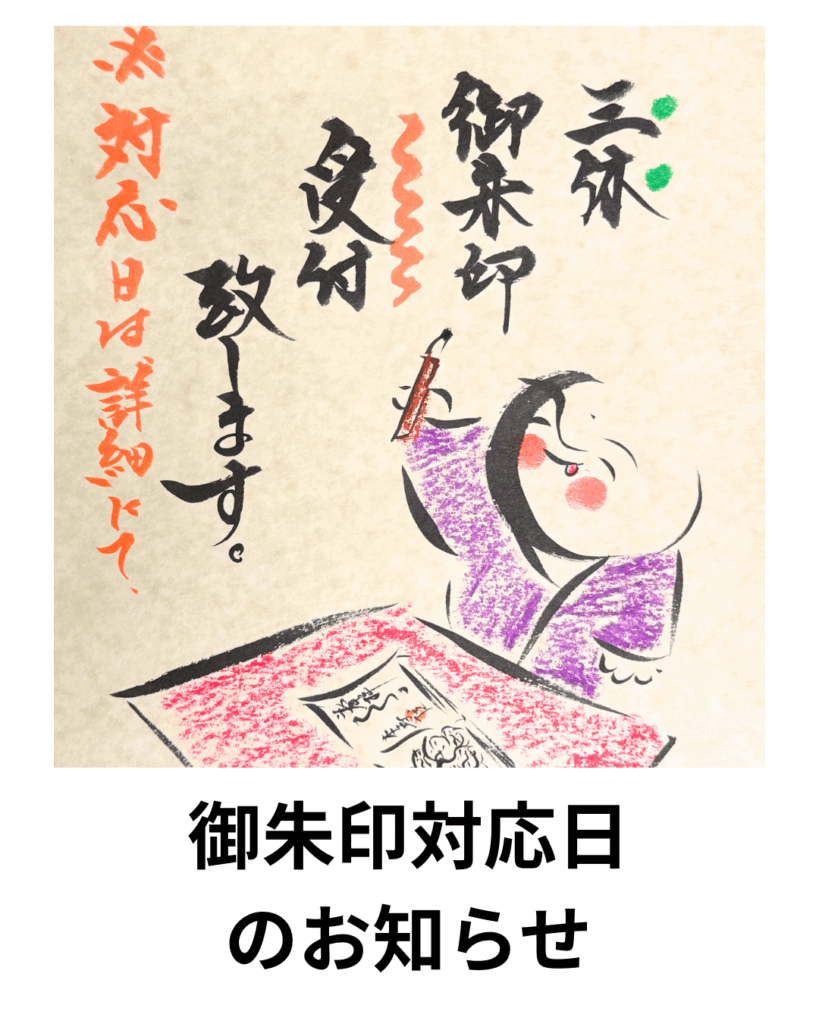 三休
御朱印
受付
致します。
※対応日は詳細にて、
御朱印対応日
のお知らせ